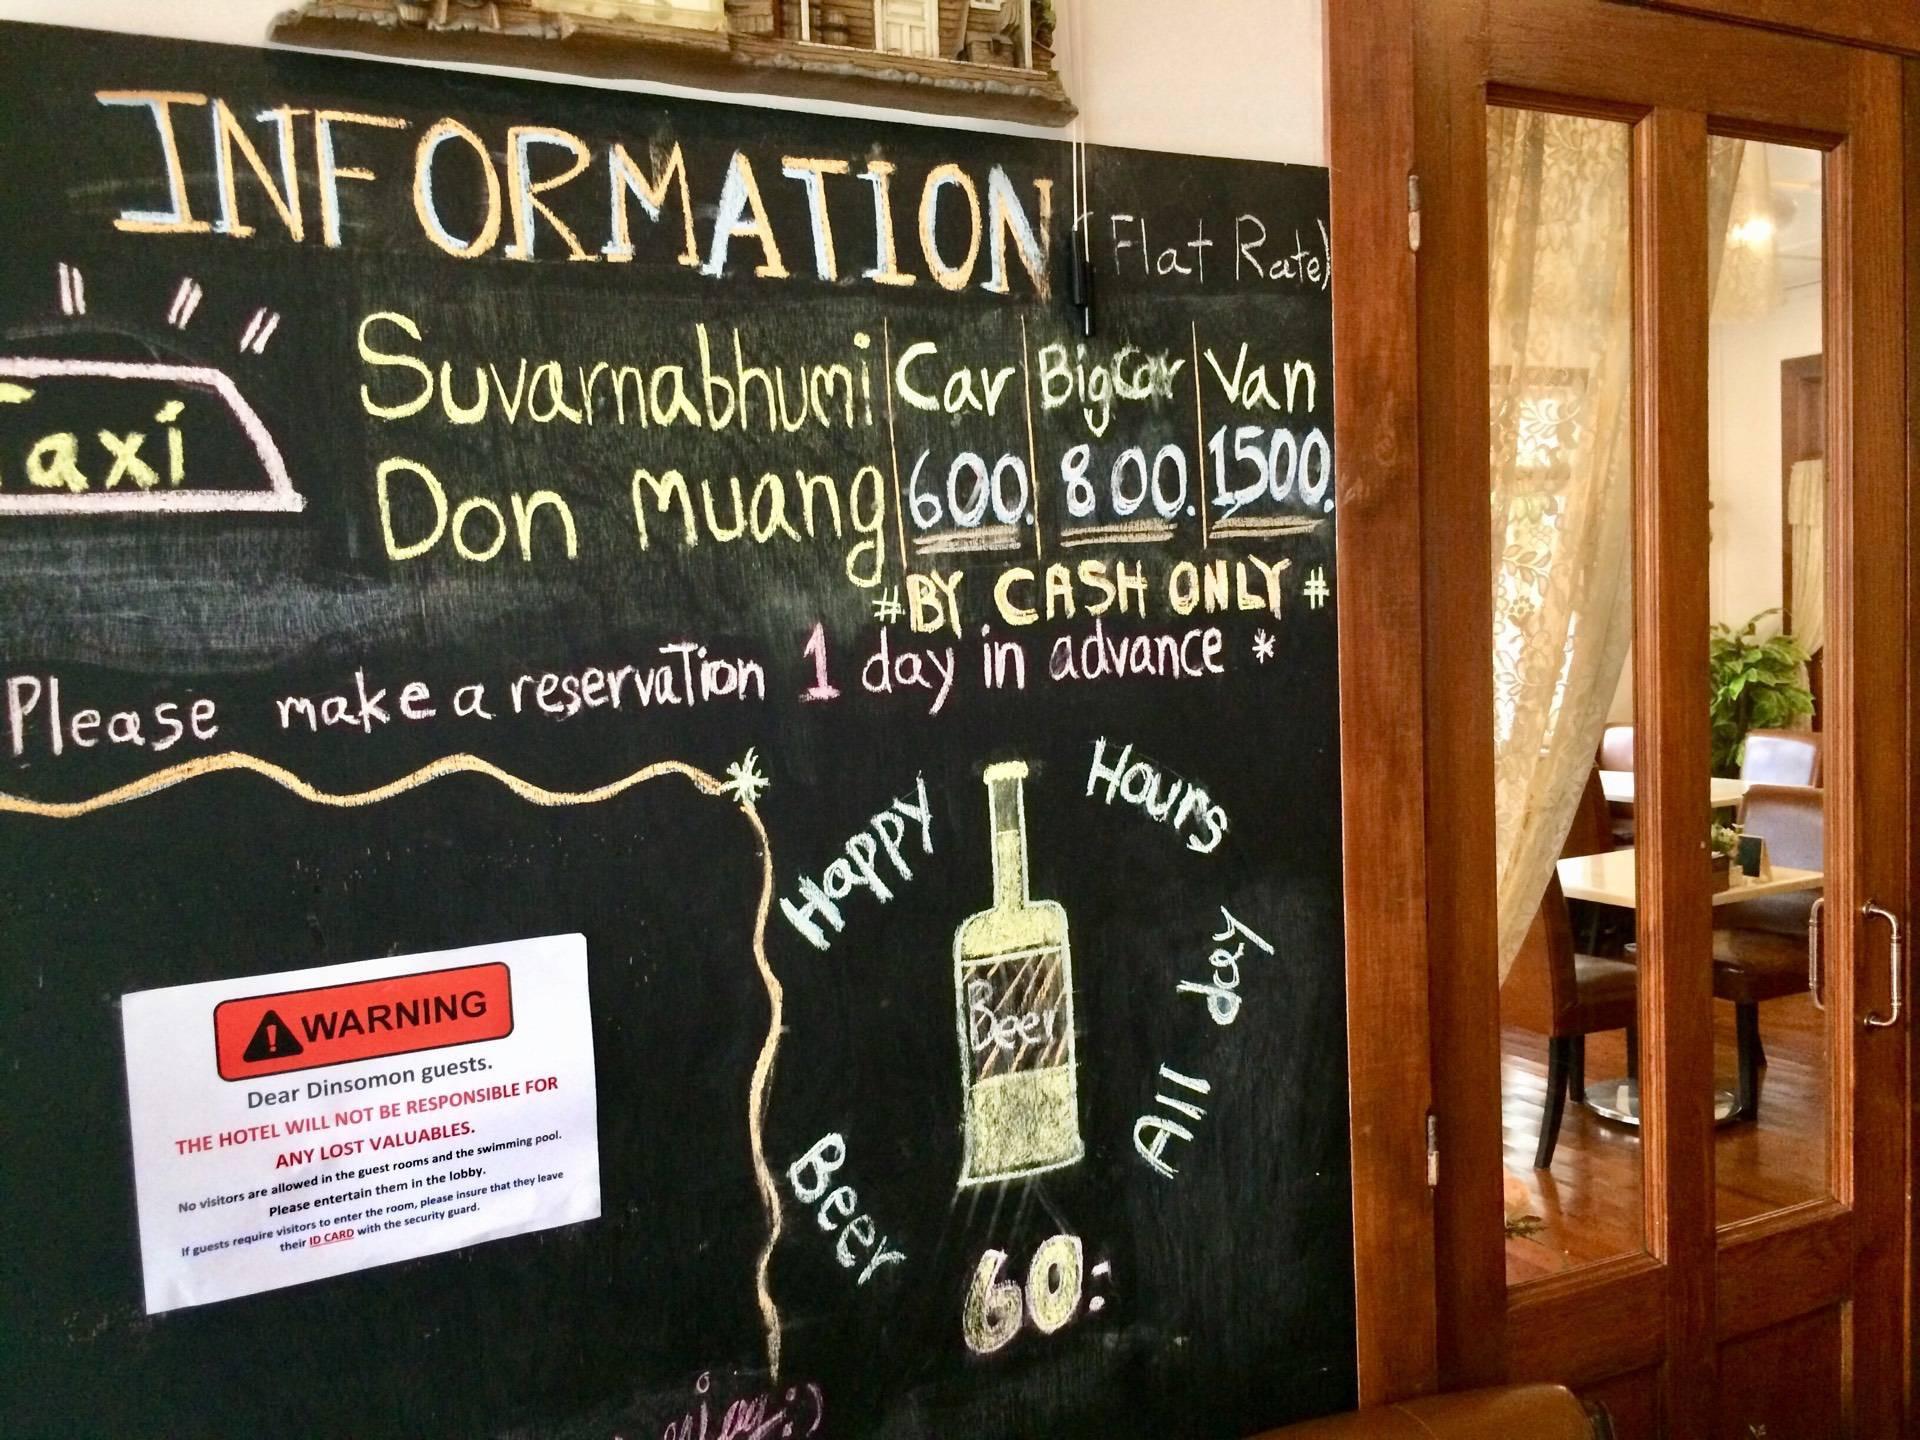 INFORMATION (Flat Rate)
Taxi
Suvarnabhumi Car Big Car Van
Don Muang 600. 800. 1500.
# BY CASH ONLY #
Please make a reservation 1 day in advance *
Happy Hours
All day
Beer
Beer
60:
WARNING
Dear Dinsomon guests.
THE HOTEL WILL NOT BE RESPONSIBLE FOR
ANY LOST VALUABLES.
No visitors are allowed in the guest rooms and the swimming pool.
Please entertain them in the lobby.
If guests require visitors to enter the room, please insure that they leave
their ID CARD with the security guard.